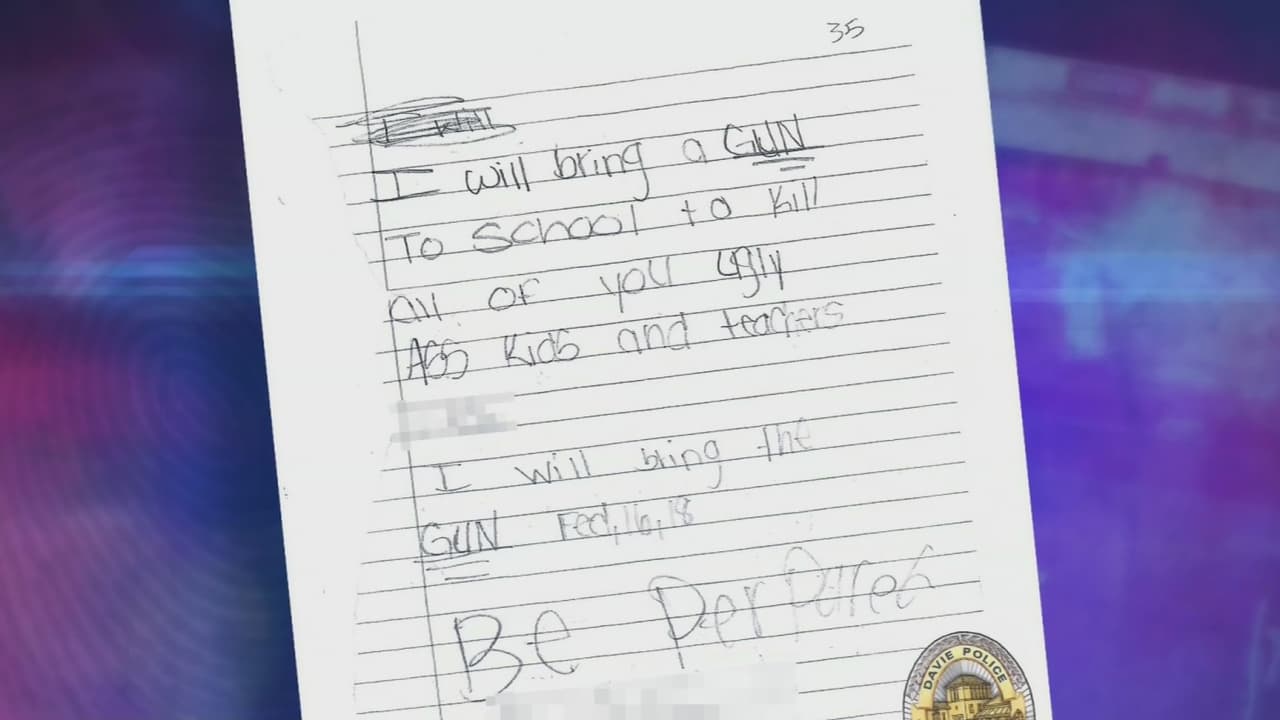 35
I will bring a GUN
To School to kill
All of you Ugly
Ass Kids and teachers
I will bring the
GUN Fed,16,18
Be Perpared
DAVIE POLICE